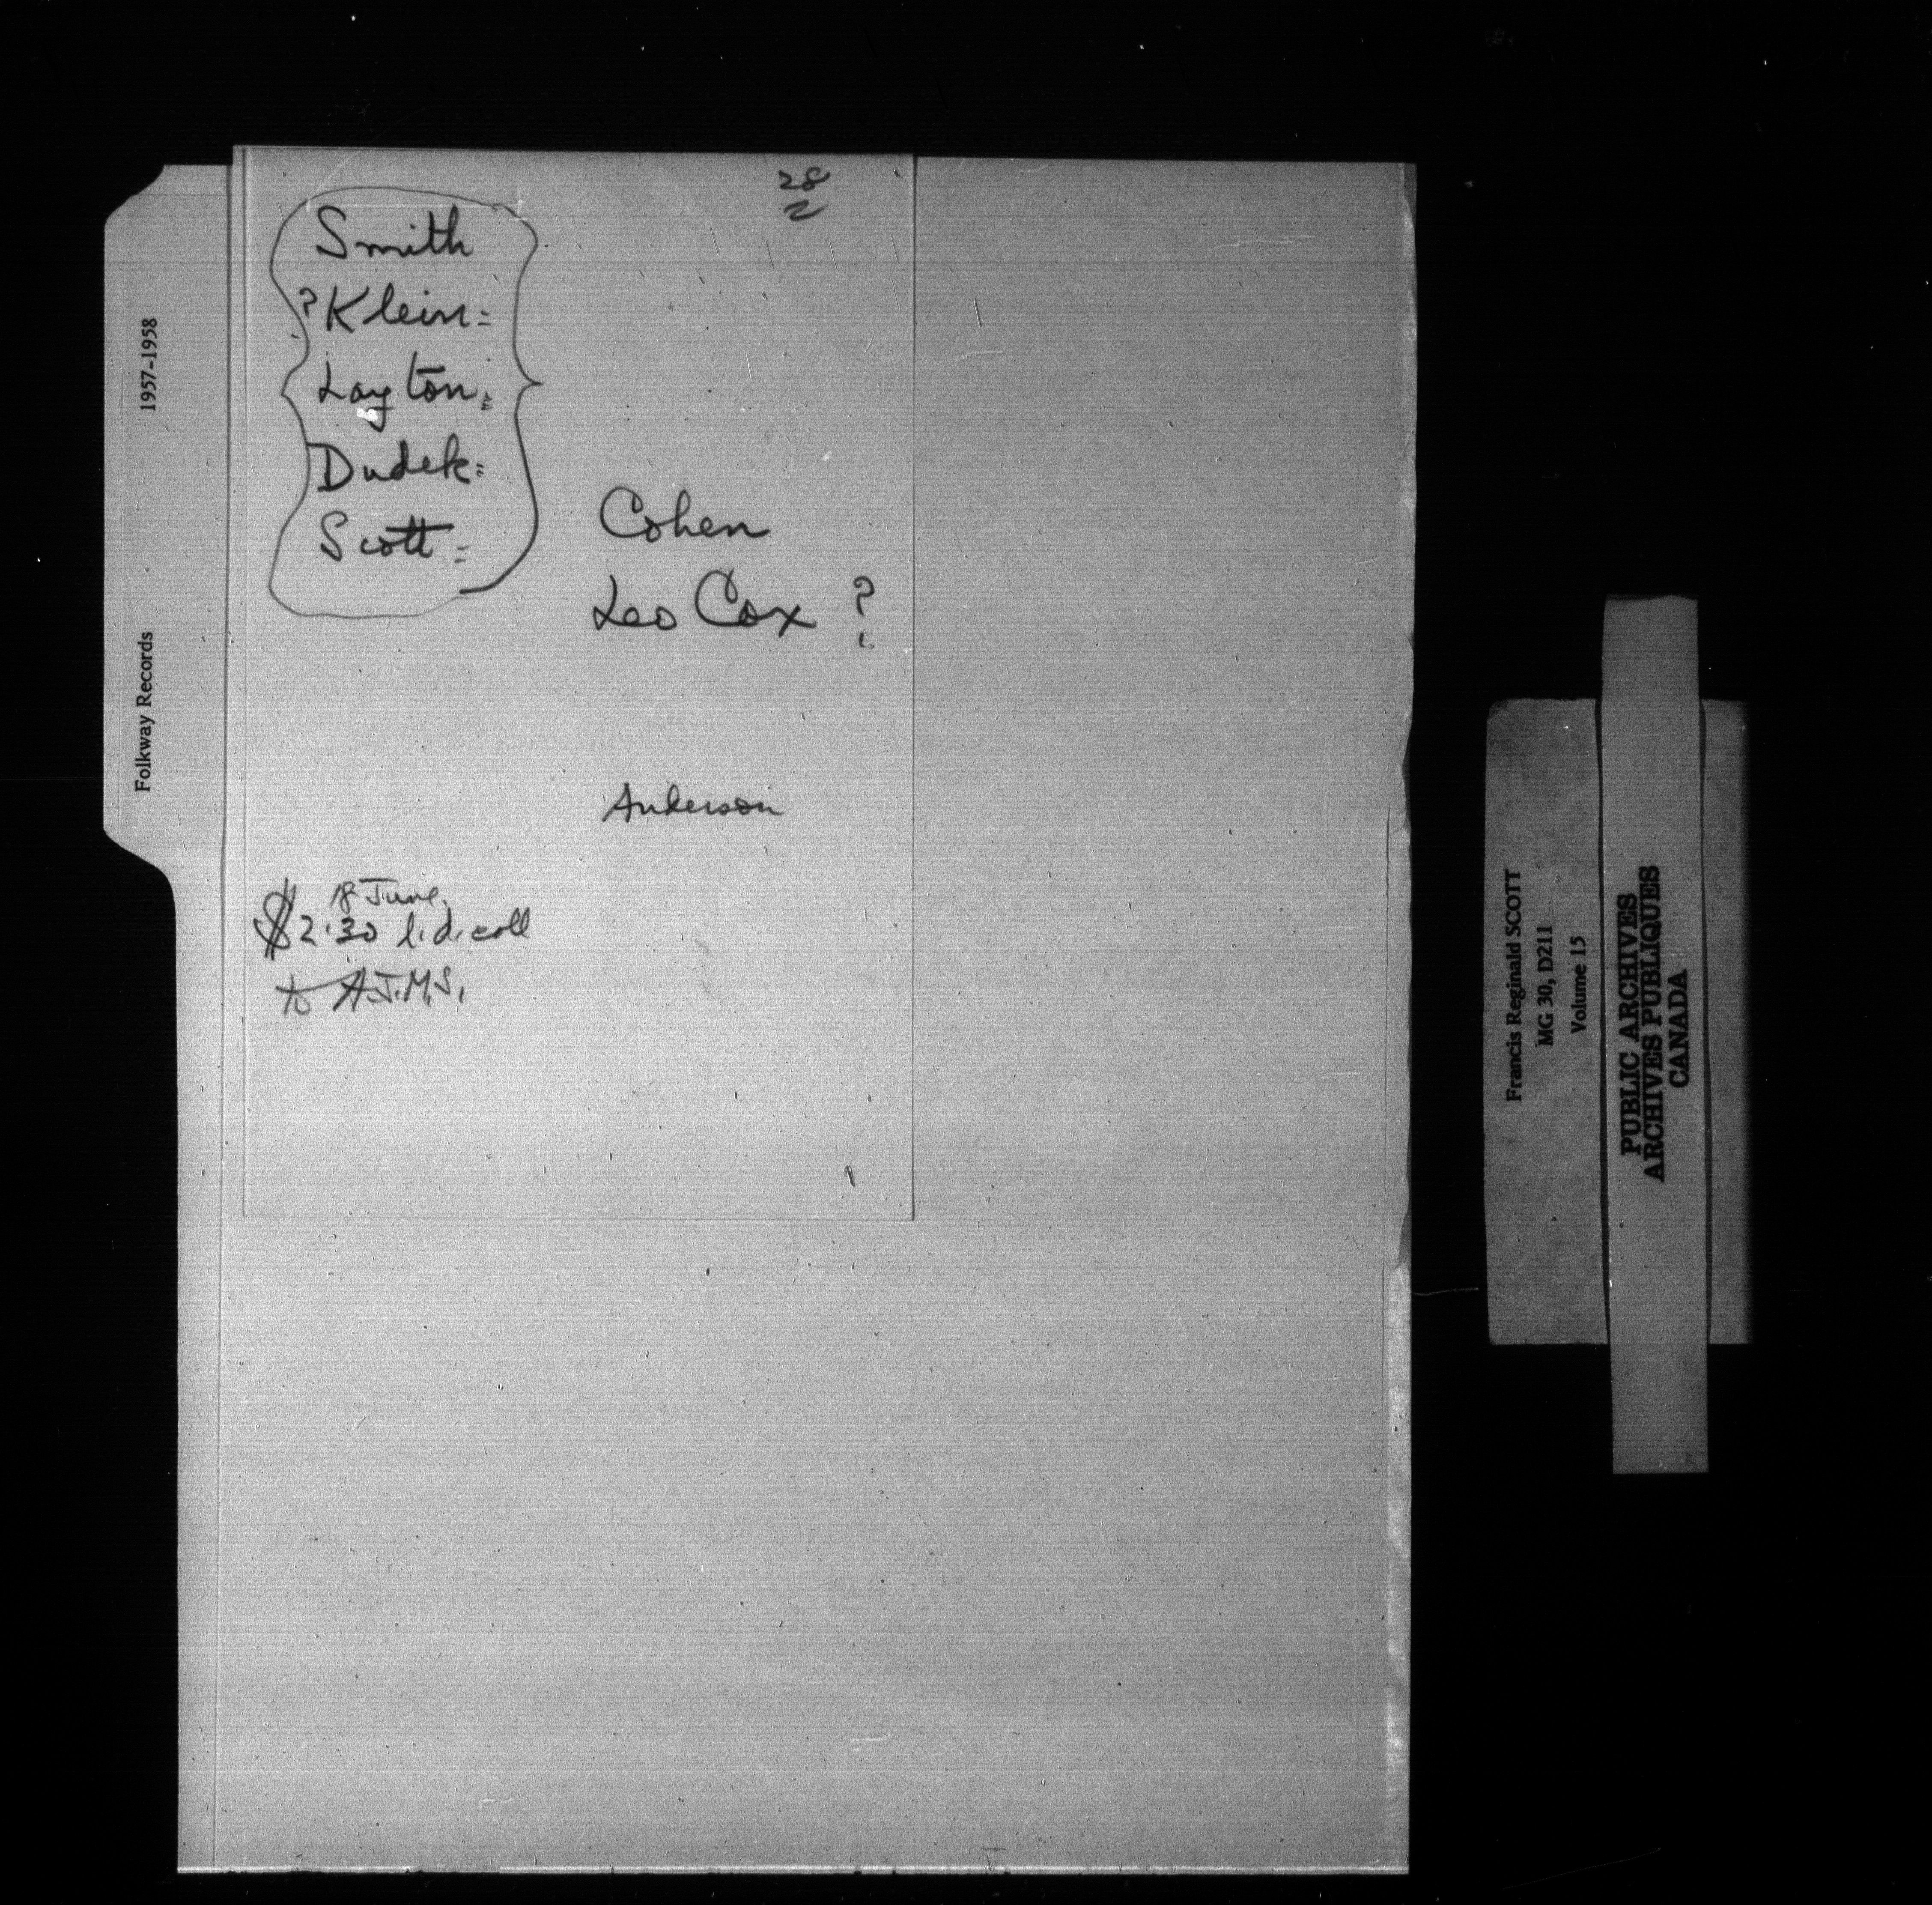 28
2
Smith
? Klein =
Layton =
Dudek =
Scott =
Cohen
Leo Cox ?
Anderson
18 June.
$2.30 l.d. call
to A.J.M.S.
Folkway Records 1957-1958
Francis Reginald SCOTT
MG 30, D211
Volume 15
PUBLIC ARCHIVES
ARCHIVES PUBLIQUES
CANADA